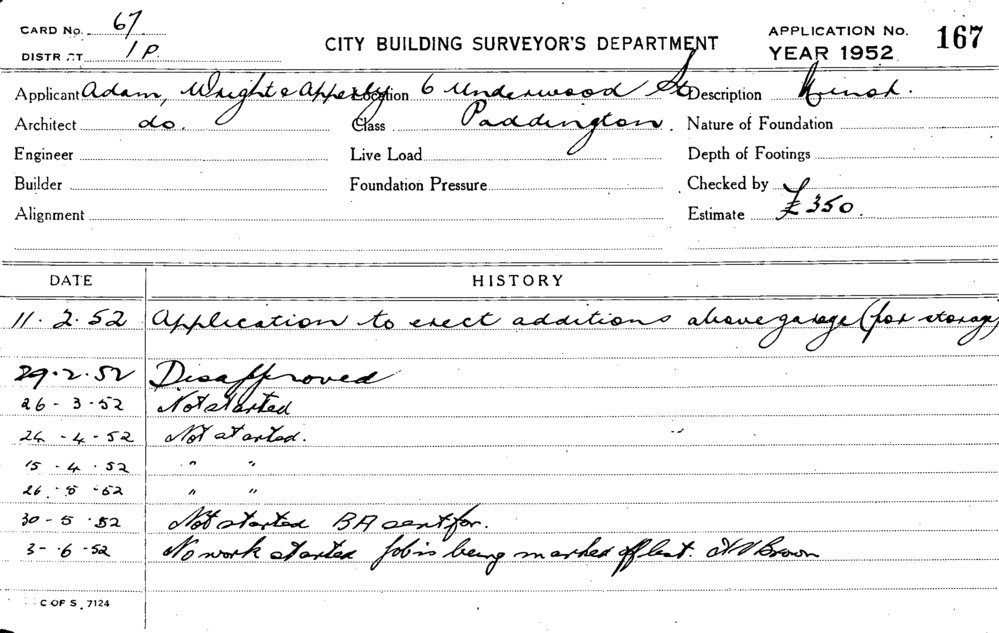 CARD No. 67
DISTRICT 1P.
CITY BUILDING SURVEYOR'S DEPARTMENT
APPLICATION No. 167
YEAR 1952
Applicant Adam, Wright & Apperby Location 6 Underwood St Description Minor.
Architect do. Class Paddington. Nature of Foundation
Engineer Live Load Depth of Footings
Builder Foundation Pressure Checked by
Alignment Estimate £350.
DATE HISTORY
11. 2. 52 Application to erect additions above garage (for storage)
29. 2. 52 Disapproved
26 - 3 - 52 Not started
24 - 4 - 52 Not started.
15 - 4 - 52 " "
26 - 5 - 52 " "
30 - 5 - 52 Not started BA sent for.
3 - 6 - 52 No work started Job is being marked off list. Brown
C OF S. 7124